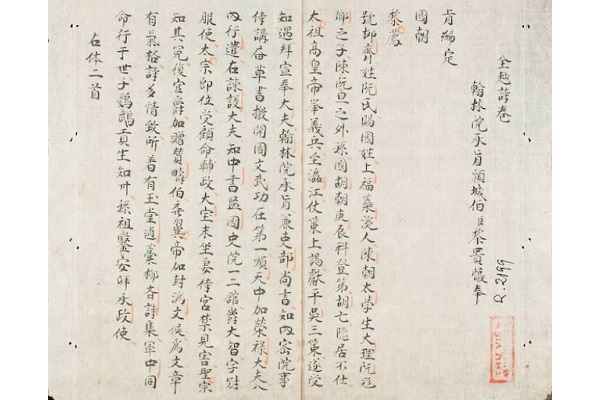 全越詩卷
翰林院承旨穎城伯臣黎貴惇奉
肯編定
國朝
黎廌
號抑齋姓阮氏賜國姓上福蘂溪人陳朝太學生大理院
之子陳阮旦之外孫國胡朝庚辰科登第胡亡隱居不仕
太祖高皇帝舉義兵至瀘江仗策上謁獻平吳三策遂受
知遇拜宣奉大夫翰林院承旨兼吏部尚書知內密院事
侍講草書檄開國文武功在第一順天中加榮祿大夫入
內行遣右諫議大夫知中書監國史院三館爵大智字
服使太宗即位受顧命輔政大宗末坐妻侍宮禁見害聖宗
知其冤復官爵加贈贊疇伯翼帝加封濟文侯為文章
有氣格詩多情致所著有玉堂遺藁抑齋詩集軍中詞
命行于世子鸚鵡貢生知州孫祖鑒安邦承政使
古体二首
R.2199
THU VIEN